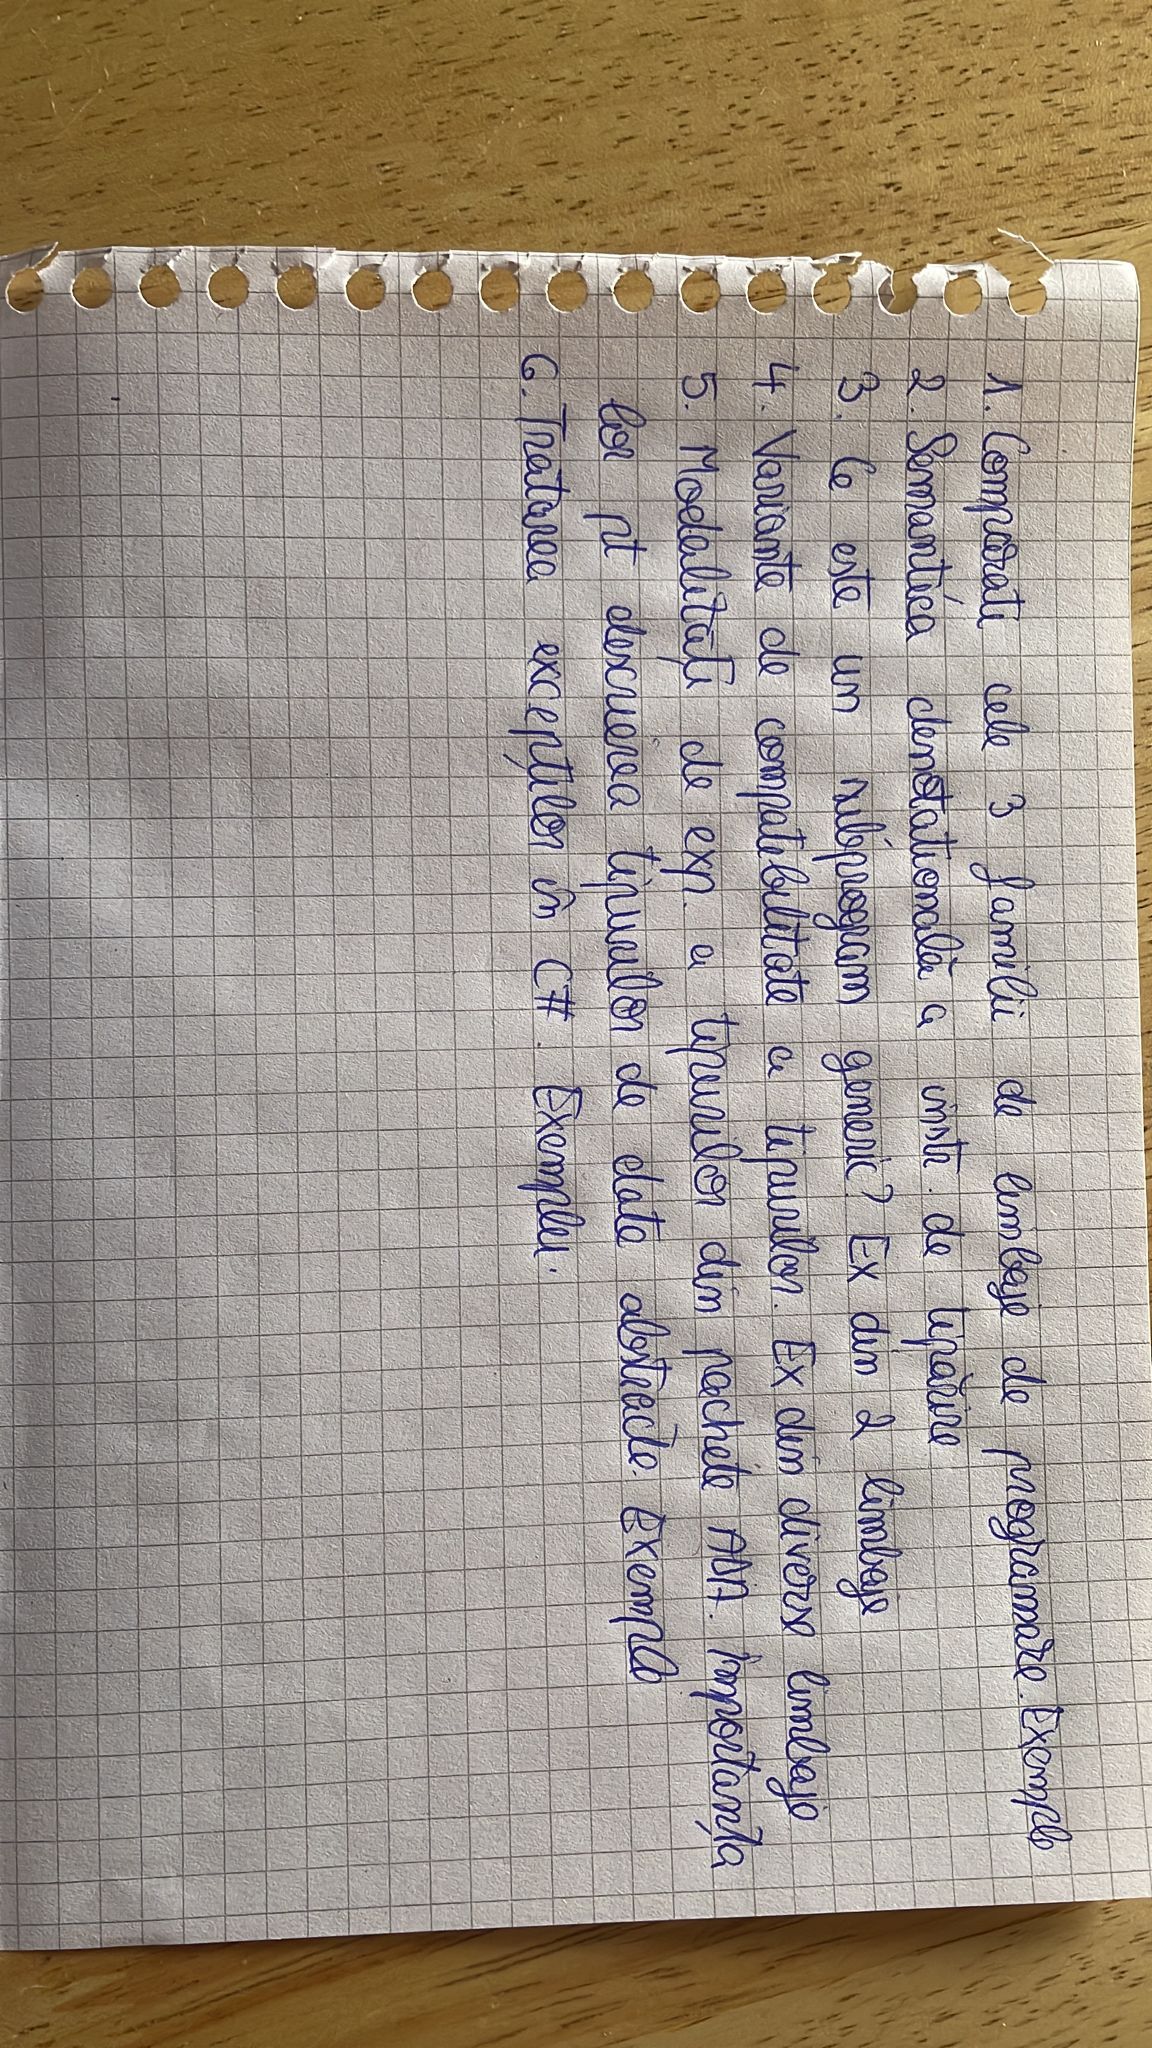 1. Comparati cele 3 familii de limbaje de programare. Exemple
2. Semantica denotatională a instr. de tipărire
3. Ce este un subprogram generic? Ex din 2 limbaje
4. Variante de compatibilitate a tipurilor. Ex din diverse limbaje
5. Modalități de exp. a tipurilor din pachete ADA. importanța
lor pt descrierea tipurilor de date abstracte. Exemple
6. Tratarea excepțiilor în C#. Exemplu.